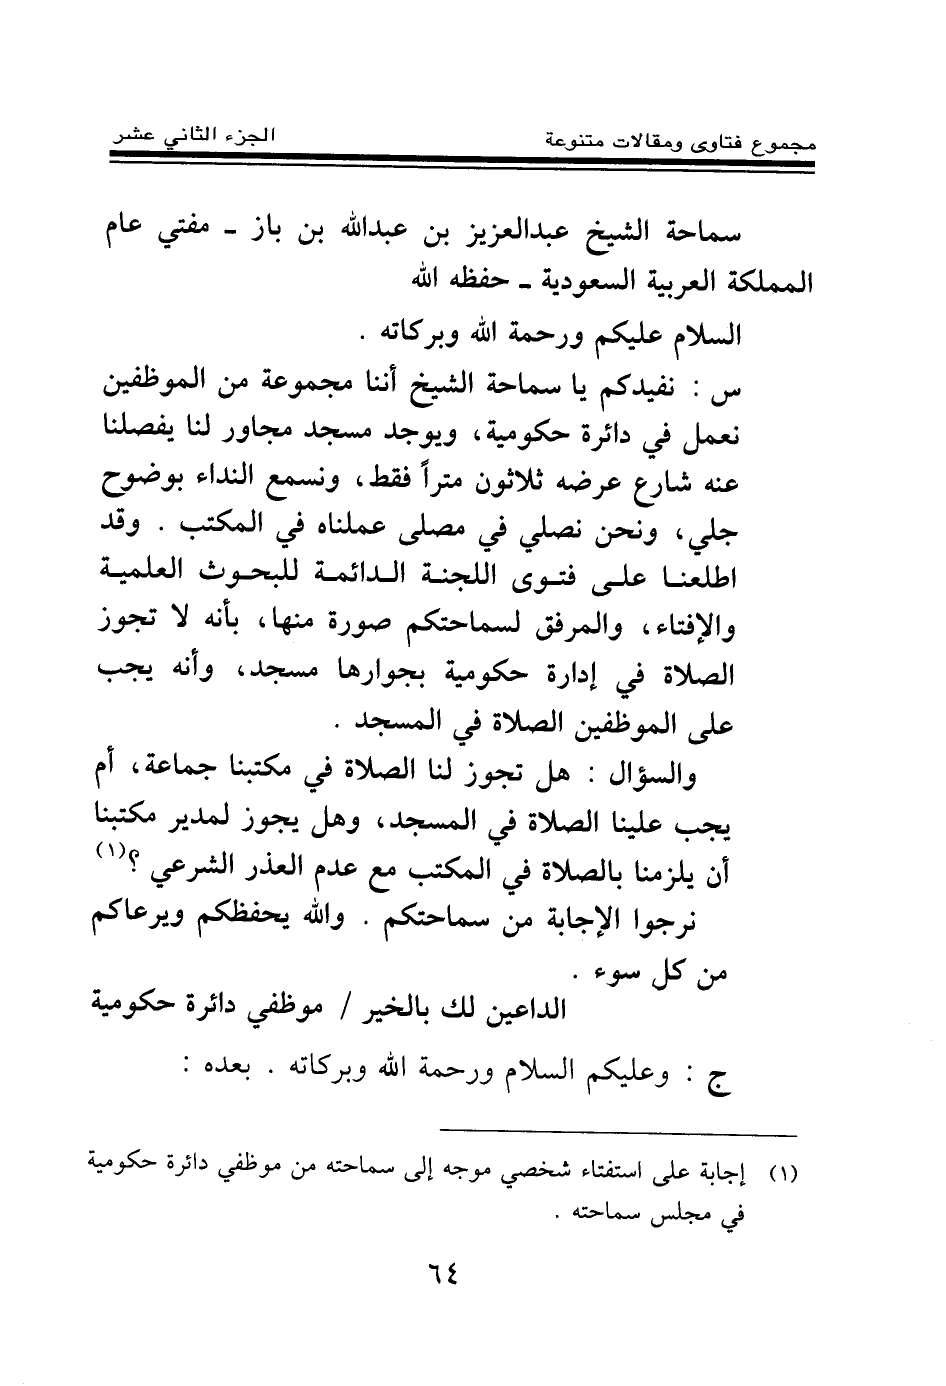 مجموع فتاوى ومقالات متنوعة الجزء الثاني عشر
سماحة الشيخ عبدالعزيز بن عبدالله بن باز ـ مفتي عام
المملكة العربية السعودية ـ حفظه الله
السلام عليكم ورحمة الله وبركاته .
س : نفيدكم يا سماحة الشيخ أننا مجموعة من الموظفين
نعمل في دائرة حكومية، ويوجد مسجد مجاور لنا يفصلنا
عنه شارع عرضه ثلاثون متراً فقط، ونسمع النداء بوضوح
جلي، ونحن نصلي في مصلى عملناه في المكتب . وقد
اطلعنا على فتوى اللجنة الدائمة للبحوث العلمية
والإفتاء، والمرفق لسماحتكم صورة منها، بأنه لا تجوز
الصلاة في إدارة حكومية بجوارها مسجد، وأنه يجب
على الموظفين الصلاة في المسجد .
والسؤال : هل تجوز لنا الصلاة في مكتبنا جماعة، أم
يجب علينا الصلاة في المسجد، وهل يجوز لمدير مكتبنا
أن يلزمنا بالصلاة في المكتب مع عدم العذر الشرعي ؟(١)
نرجوا الإجابة من سماحتكم . والله يحفظكم ويرعاكم
من كل سوء .
الداعين لك بالخير / موظفي دائرة حكومية
ج : وعليكم السلام ورحمة الله وبركاته . بعده :
(١) إجابة على استفتاء شخصي موجه إلى سماحته من موظفي دائرة حكومية
في مجلس سماحته .
٦٤